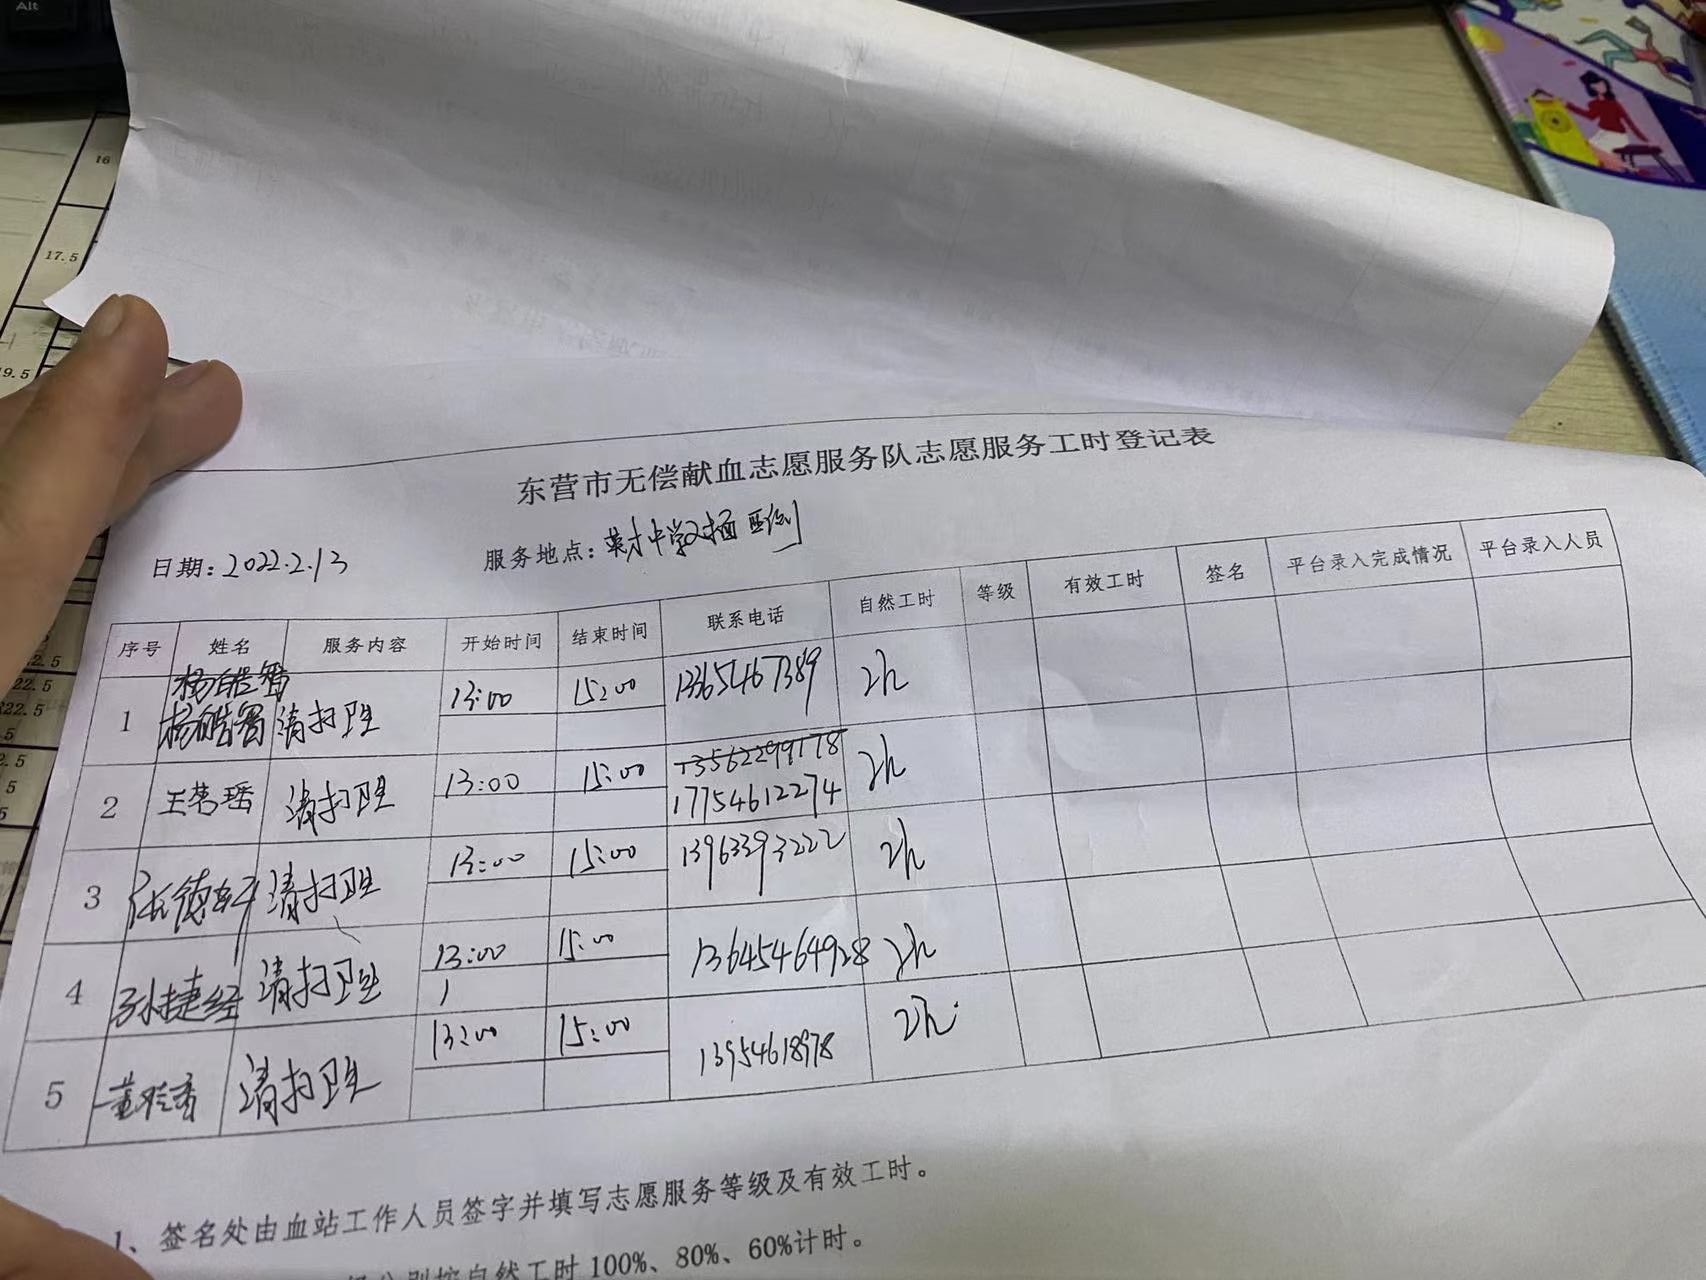 Alt
16
17.5
19.5
东营市无偿献血志愿服务队志愿服务工时登记表
日期:2022.2.13 服务地点:英才中学对面
序号 姓名 服务内容 开始时间 结束时间 联系电话 自然工时 等级 有效工时 签名 平台录入完成情况 平台录入人员
1 清扫卫生 13:00 15:00 13365467389 2h
13562299178
2 清扫卫生 13:00 15:00 17754612274 2h
3 张德轩 清扫卫生 13:00 15:00 13963393222 2h
4 孙捷经 清扫卫生 13:00 15:00 13645464928 2h
5 清扫卫生 13:00 15:00 13954618978 2h
1、签名处由血站工作人员签字并填写志愿服务等级及有效工时。
分别按自然工时100%、80%、60%计时。